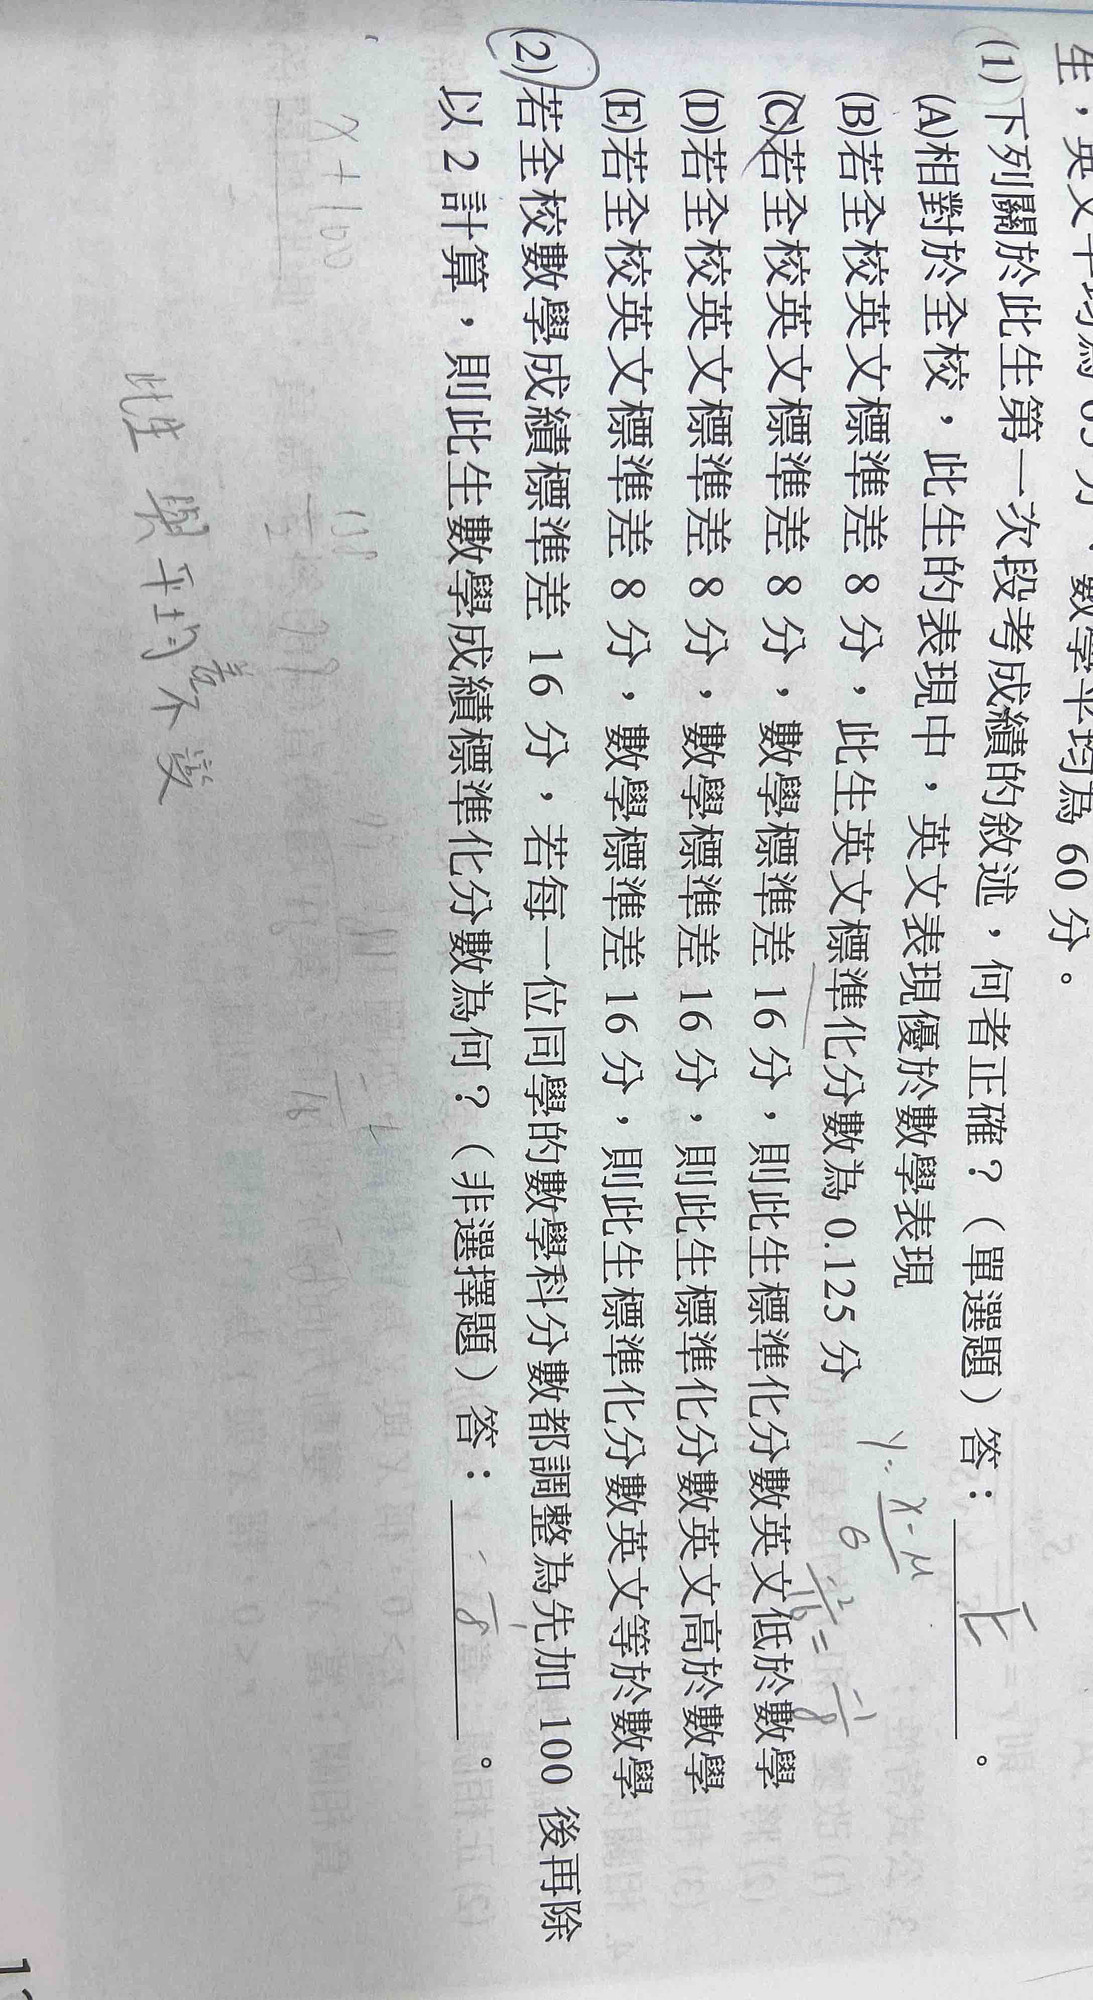 生,英文平均為 65 分、數學平均為 60 分。
(1)下列關於此生第一次段考成績的敘述,何者正確?(單選題)答: E 。
(A)相對於全校,此生的表現中,英文表現優於數學表現
(B)若全校英文標準差 8 分,此生英文標準化分數為 0.125 分
(C)若全校英文標準差 8 分,數學標準差 16 分,則此生標準化分數英文低於數學
(D)若全校英文標準差 8 分,數學標準差 16 分,則此生標準化分數英文高於數學
(E)若全校英文標準差 8 分,數學標準差 16 分,則此生標準化分數英文等於數學
(2)若全校數學成績標準差 16 分,若每一位同學的數學科分數都調整為先加 100 後再除
以 2 計算,則此生數學成績標準化分數為何?(非選擇題)答: 。
x+100
此生與平均差不變